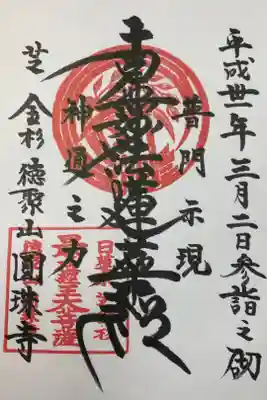 平成卅一年三月二日参詣之砌
普門示現
南無妙法蓮華経
神通之力
芝 金杉 徳聚山 圓珠寺